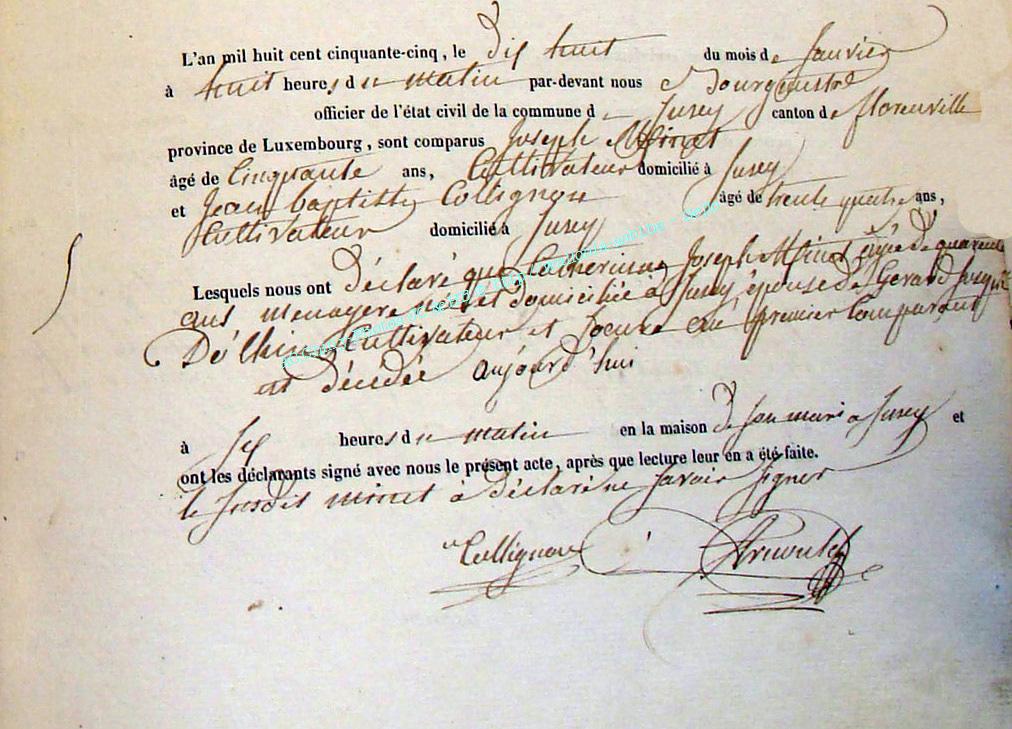 L'an mil huit cent cinquante-cinq, le dix huit du mois de Janvier
à huit heures du matin par-devant nous Bourgmestre
officier de l'état civil de la commune de Jusey canton de florenville
province de Luxembourg, sont comparus Joseph Minet
âgé de Cinquante ans, Cultivateur domicilié à Jusey
et Jean baptiste Collignon âgé de trente quatre ans,
Cultivateur domicilié à Jusey
Lesquels nous ont déclaré que Catherine Joseph Minet agée de quarante
ans menagere née et domiciliée a Jusey, épouse de Gerard
Cultivateur et Soeure au premier Comparant
est décédée aujourd'hui
à six heures du matin en la maison de son mari a Jusey et
ont les déclarants signé avec nous le présent acte, après que lecture leur en a été faite.
le Susdit minet à déclaré ne Savoir Signer
Collignon